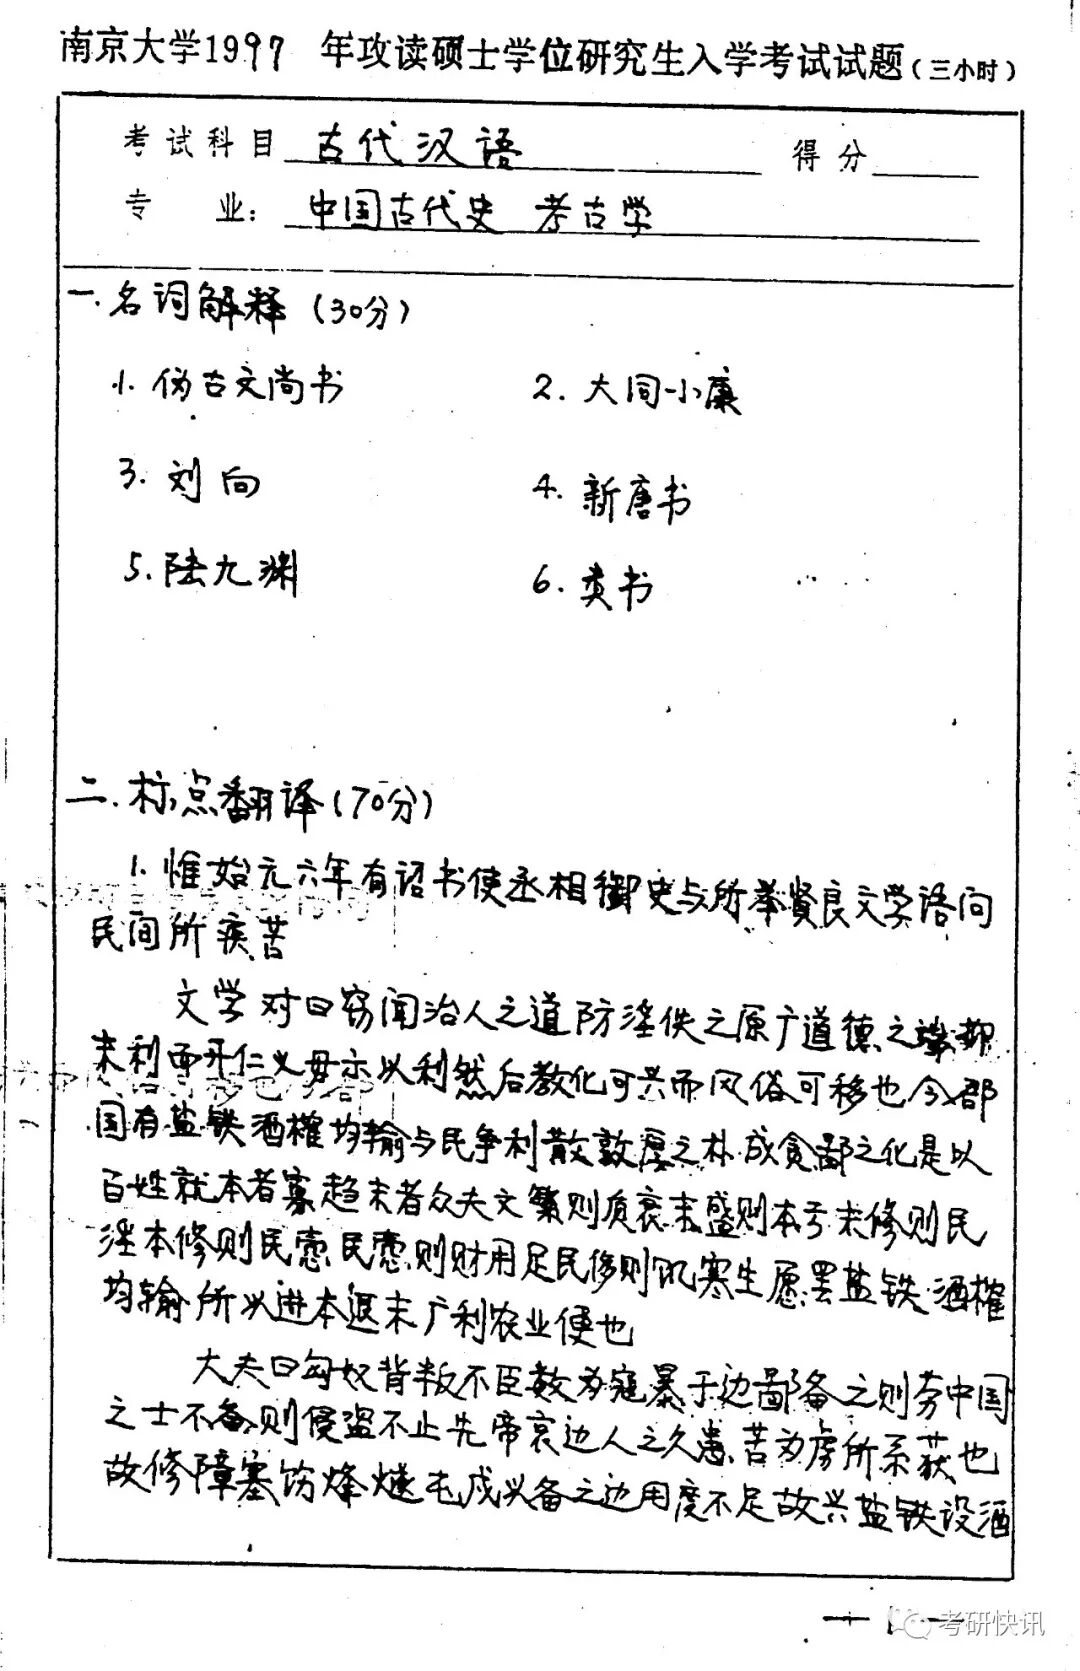 南京大学1997 年攻读硕士学位研究生入学考试试题(三小时)
考试科目 古代汉语 得分
专 业: 中国古代史 考古学
一.名词解释(30分)
1.伪古文尚书 2.大同小康
3.刘向 4.新唐书
5.陆九渊 6.类书
二.标点翻译(70分)
1.惟始元六年有诏书使丞相御史与所举贤良文学语问
民间所疾苦
文学对曰窃闻治人之道防淫佚之原广道德之端抑
末利而开仁义毋示以利然后教化可兴而风俗可移也今郡
国有盐铁酒榷均输与民争利散敦厚之朴成贪鄙之化是以
百姓就本者寡趋末者众夫文繁则质衰末盛则本亏末修则民
淫本修则民悫民悫则财用足民侈则饥寒生愿罢盐铁酒榷
均输所以进本退末广利农业便也
大夫曰匈奴背叛不臣数为寇暴于边鄙备之则劳中国
之士不备则侵盗不止先帝哀边人之久患苦为虏所系获也
故修障塞饬烽燧屯戍以备之边用度不足故兴盐铁设酒
— 1 —
考研快讯